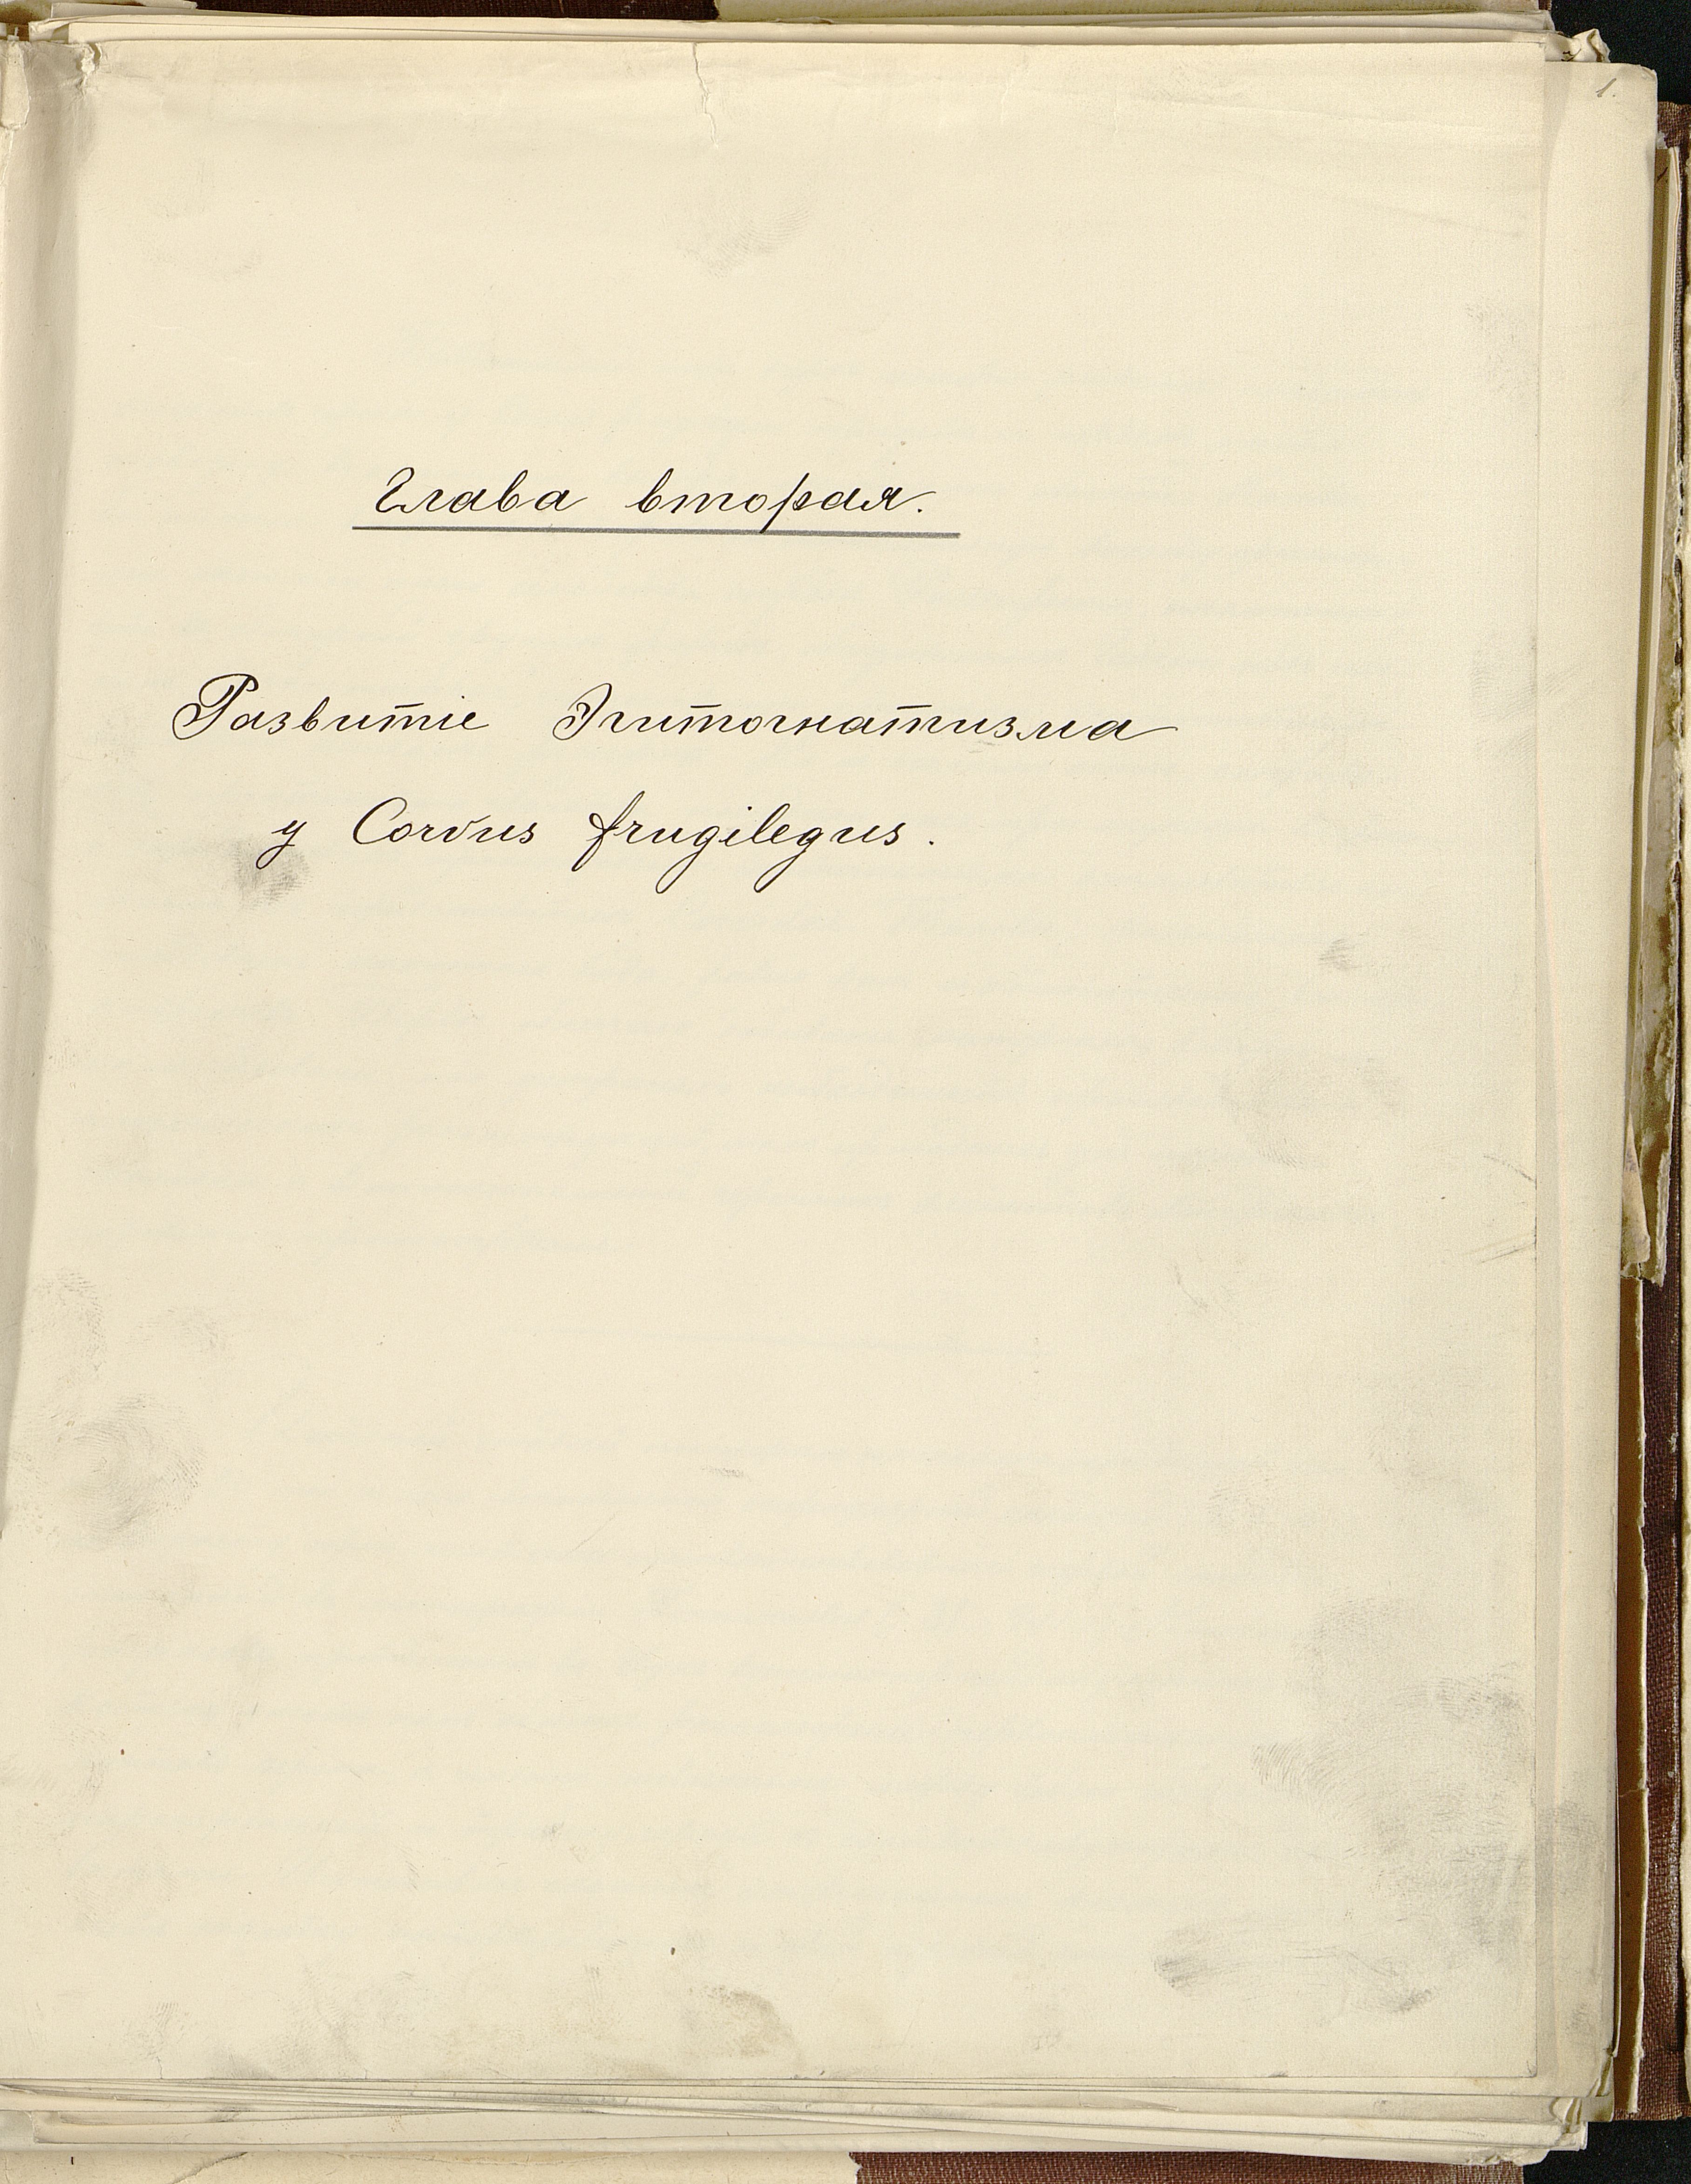 1.
Глава вторая.
Развитіе Эгитогнатизма
у Corvus frugilegus.